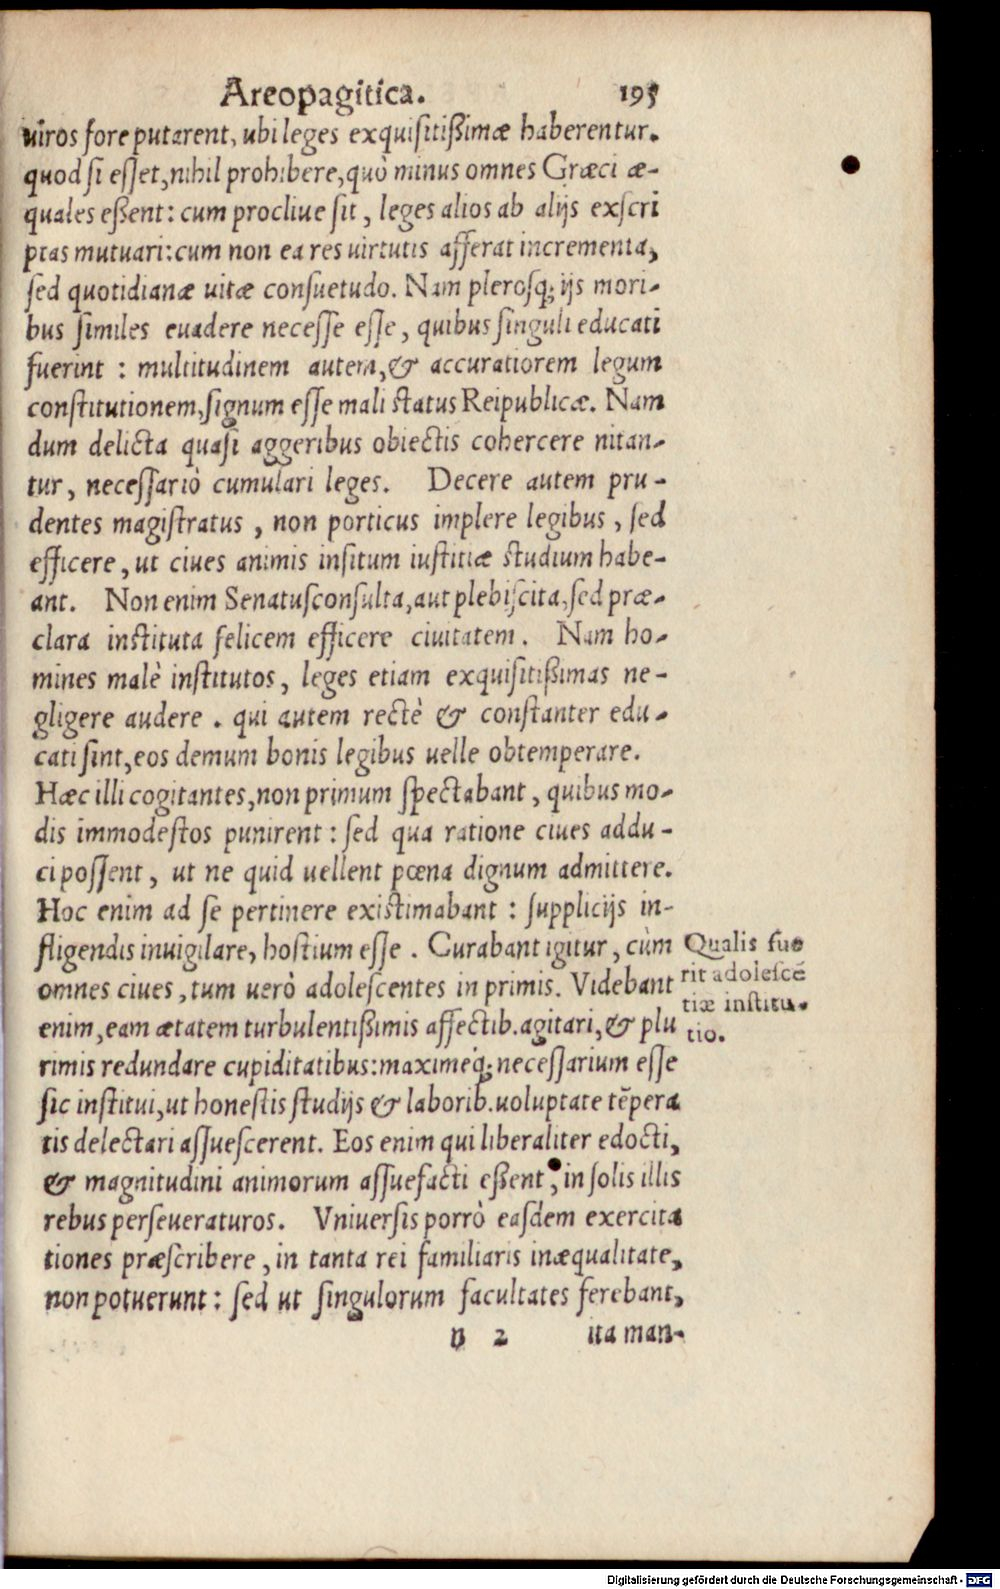 Areopagitica. 195
uiros fore putarent, ubi leges exquisitißimæ haberentur.
quod si esset, nihil prohibere, quò minus omnes Græci æ-
quales eßent: cum procliue sit, leges alios ab alijs exscri
ptas mutuari: cum non ea res uirtutis afferat incrementa,
sed quotidianæ uitæ consuetudo. Nam plerosq; ijs mori-
bus similes euadere necesse esse, quibus singuli educati
fuerint : multitudinem autem, & accuratiorem legum
constitutionem, signum esse mali status Reipublicæ. Nam
dum delicta quasi aggeribus obiectis cohercere nitan-
tur, necessariò cumulari leges. Decere autem pru-
dentes magistratus, non porticus implere legibus, sed
efficere, ut ciues animis insitum iustitiæ studium habe-
ant. Non enim Senatusconsulta, aut plebiscita, sed præ-
clara instituta felicem efficere ciuitatem. Nam ho-
mines malè institutos, leges etiam exquisitißimas ne-
gligere audere. qui autem rectè & constanter edu-
cati sint, eos demum bonis legibus uelle obtemperare.
Hæc illi cogitantes, non primum spectabant, quibus mo-
dis immodestos punirent: sed qua ratione ciues addu-
ci possent, ut ne quid uellent pœna dignum admittere.
Hoc enim ad se pertinere existimabant: supplicijs in-
fligendis inuigilare, hostium esse. Curabant igitur, cùm
omnes ciues, tum uerò adolescentes in primis. Videbant
enim, eam ætatem turbulentißimis affectib. agitari, & plu
rimis redundare cupiditatibus: maximeq́; necessarium esse
sic institui, ut honestis studijs & laborib. uoluptate tēpera
tis delectari assuescerent. Eos enim qui liberaliter edocti,
& magnitudini animorum assuefacti eßent, in solis illis
rebus perseueraturos. Vniuersis porrò easdem exercita
tiones præscribere, in tanta rei familiaris inæqualitate,
non potuerunt: sed ut singulorum facultates ferebant,
n 2 ita man-
Qualis fue
rit adolescē
tiæ institu-
tio.
Digitalisierung gefördert durch die Deutsche Forschungsgemeinschaft - DFG